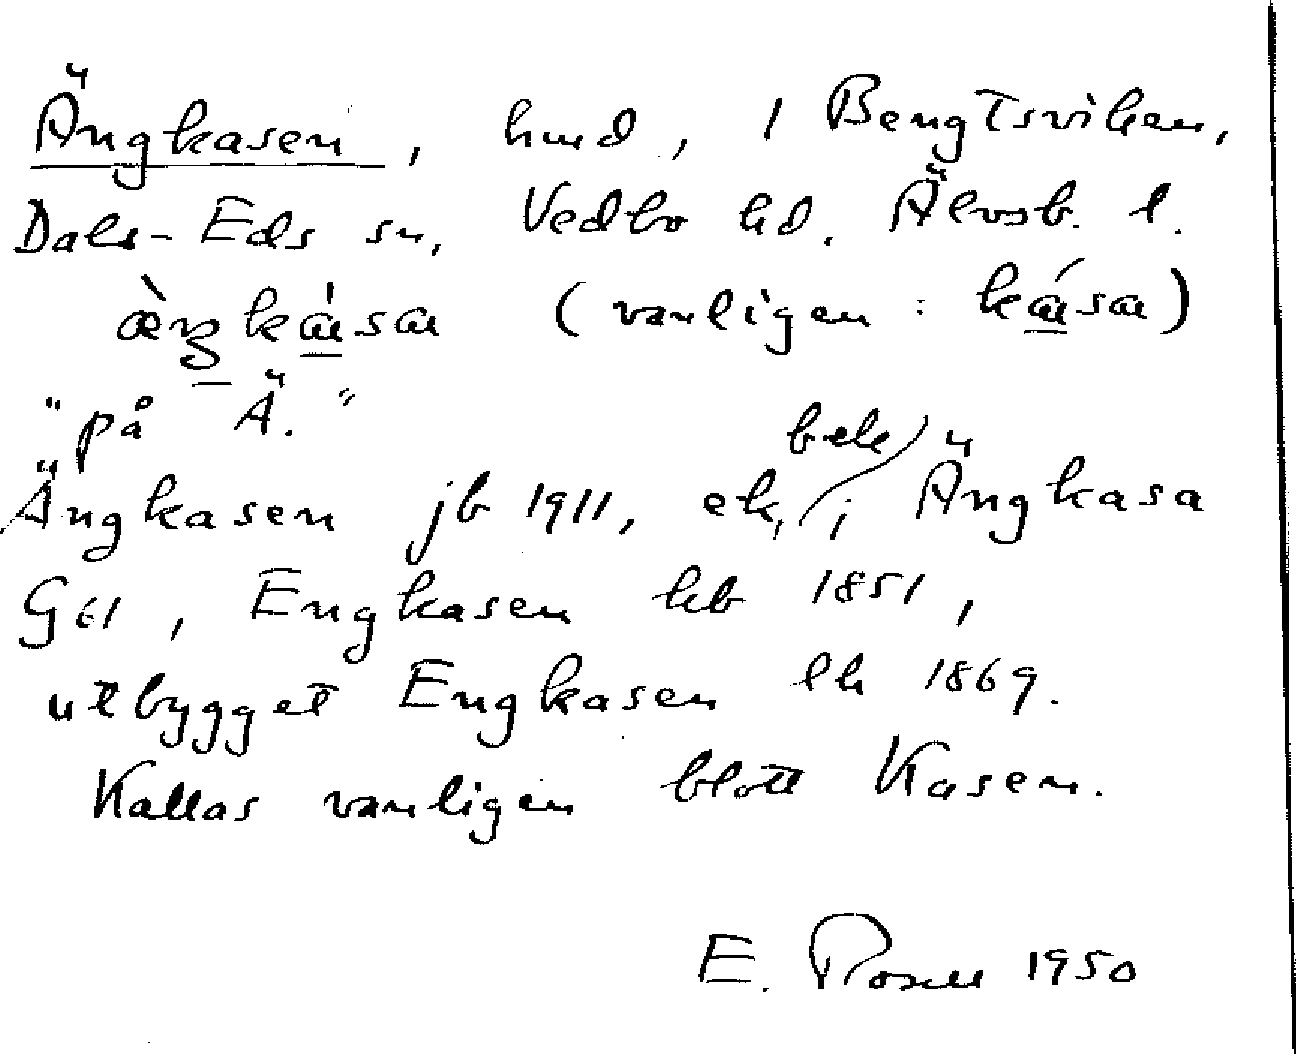 Ängkasen, hmd, 1 Bengtsviken,
Dals-Eds sn, Vedbo hd. Älvsb. l.
(vanligen:
"på Ä."
Ängkasen jb 1911, ek, bek i Ängkasa
G61, Engkasen kb 1851,
utbygget Engkasen lh 1869.
Kallas vanligen blott Kasen.
E. Rosell 1950